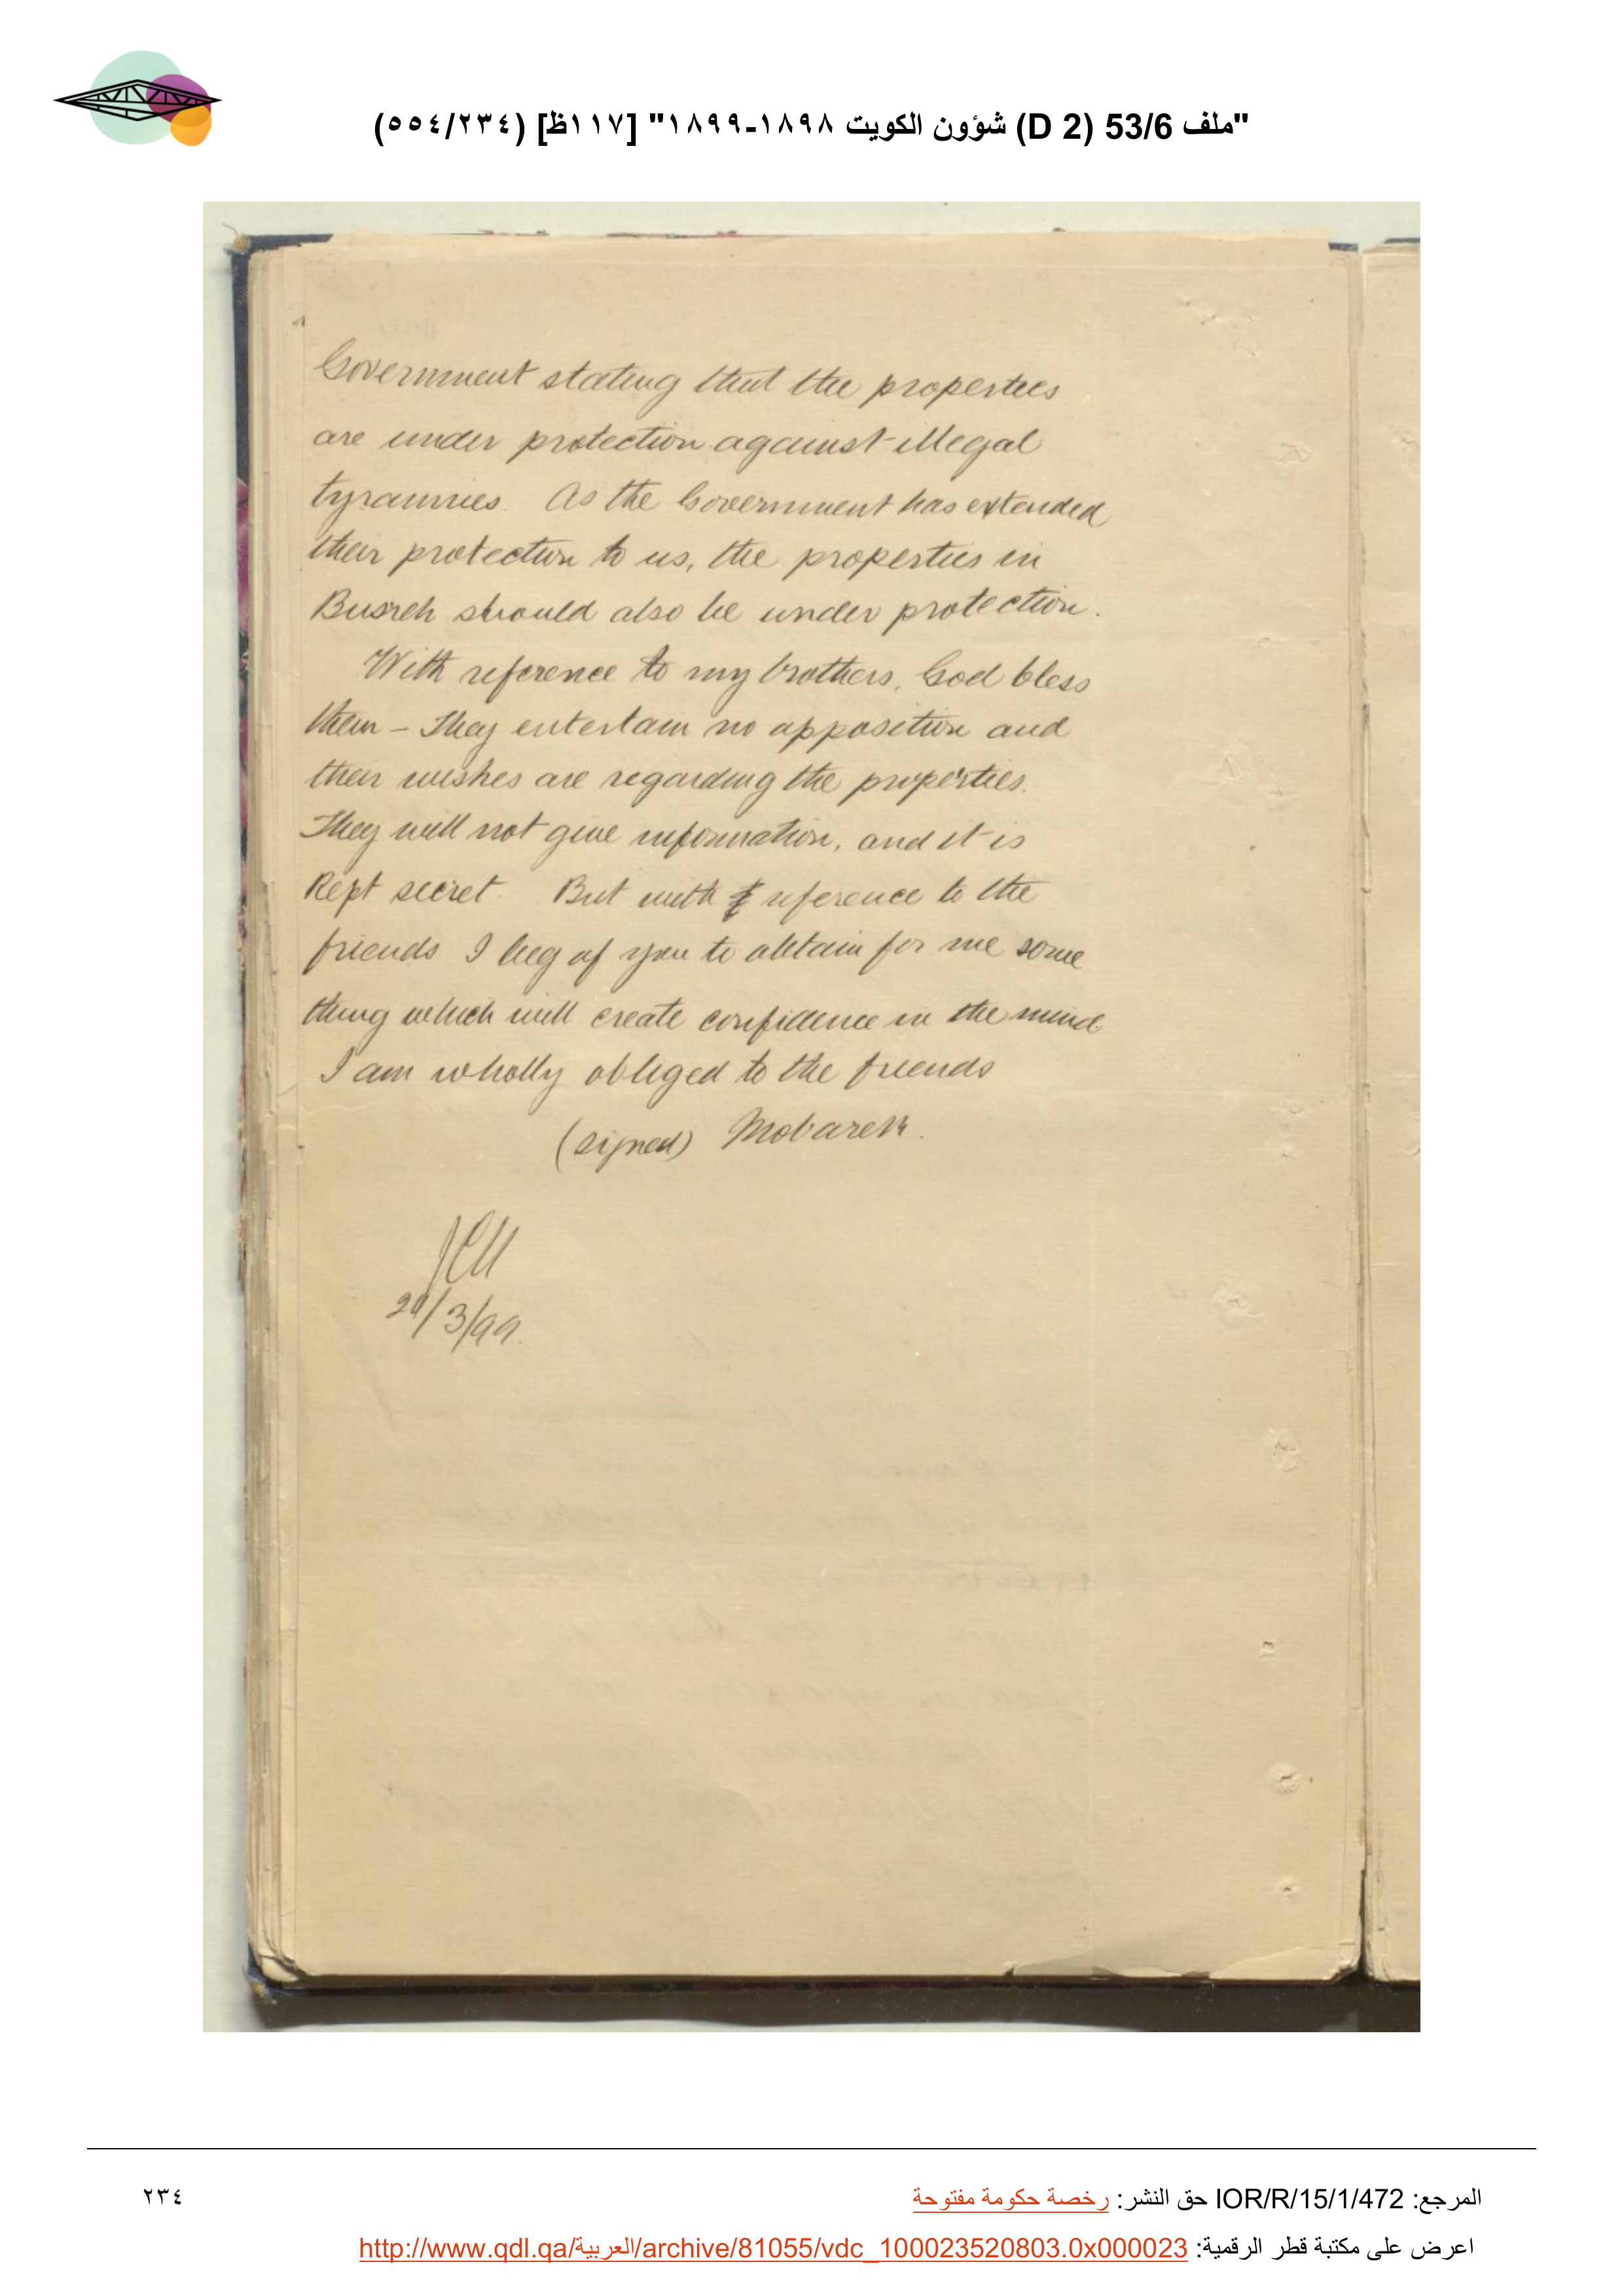 "ملف 53/6 (D 2) شؤون الكويت ١٨٩٨-١٨٩٩" [١١٧ظ] (٢٣٤/٥٥٤)
Government stating that the properties
are under protection against illegal
tyrannies. As the Government has extended
their protection to us, the properties in
Busreh should also be under protection.
With reference to my brothers, God bless
them - They entertain no opposition and
their wishes are regarding the properties.
They will not give information, and it is
Kept secret. But with reference to the
friends I beg of you to obtain for me some
thing which will create confidence in the mind
I am wholly obliged to the friends
(signed) Mobarek.
/3/99.
المرجع: IOR/R/15/1/472 حق النشر: رخصة حكومة مفتوحة
٢٣٤
اعرض على مكتبة قطر الرقمية: http://www.qdl.qa/العربية/archive/81055/vdc_100023520803.0x000023